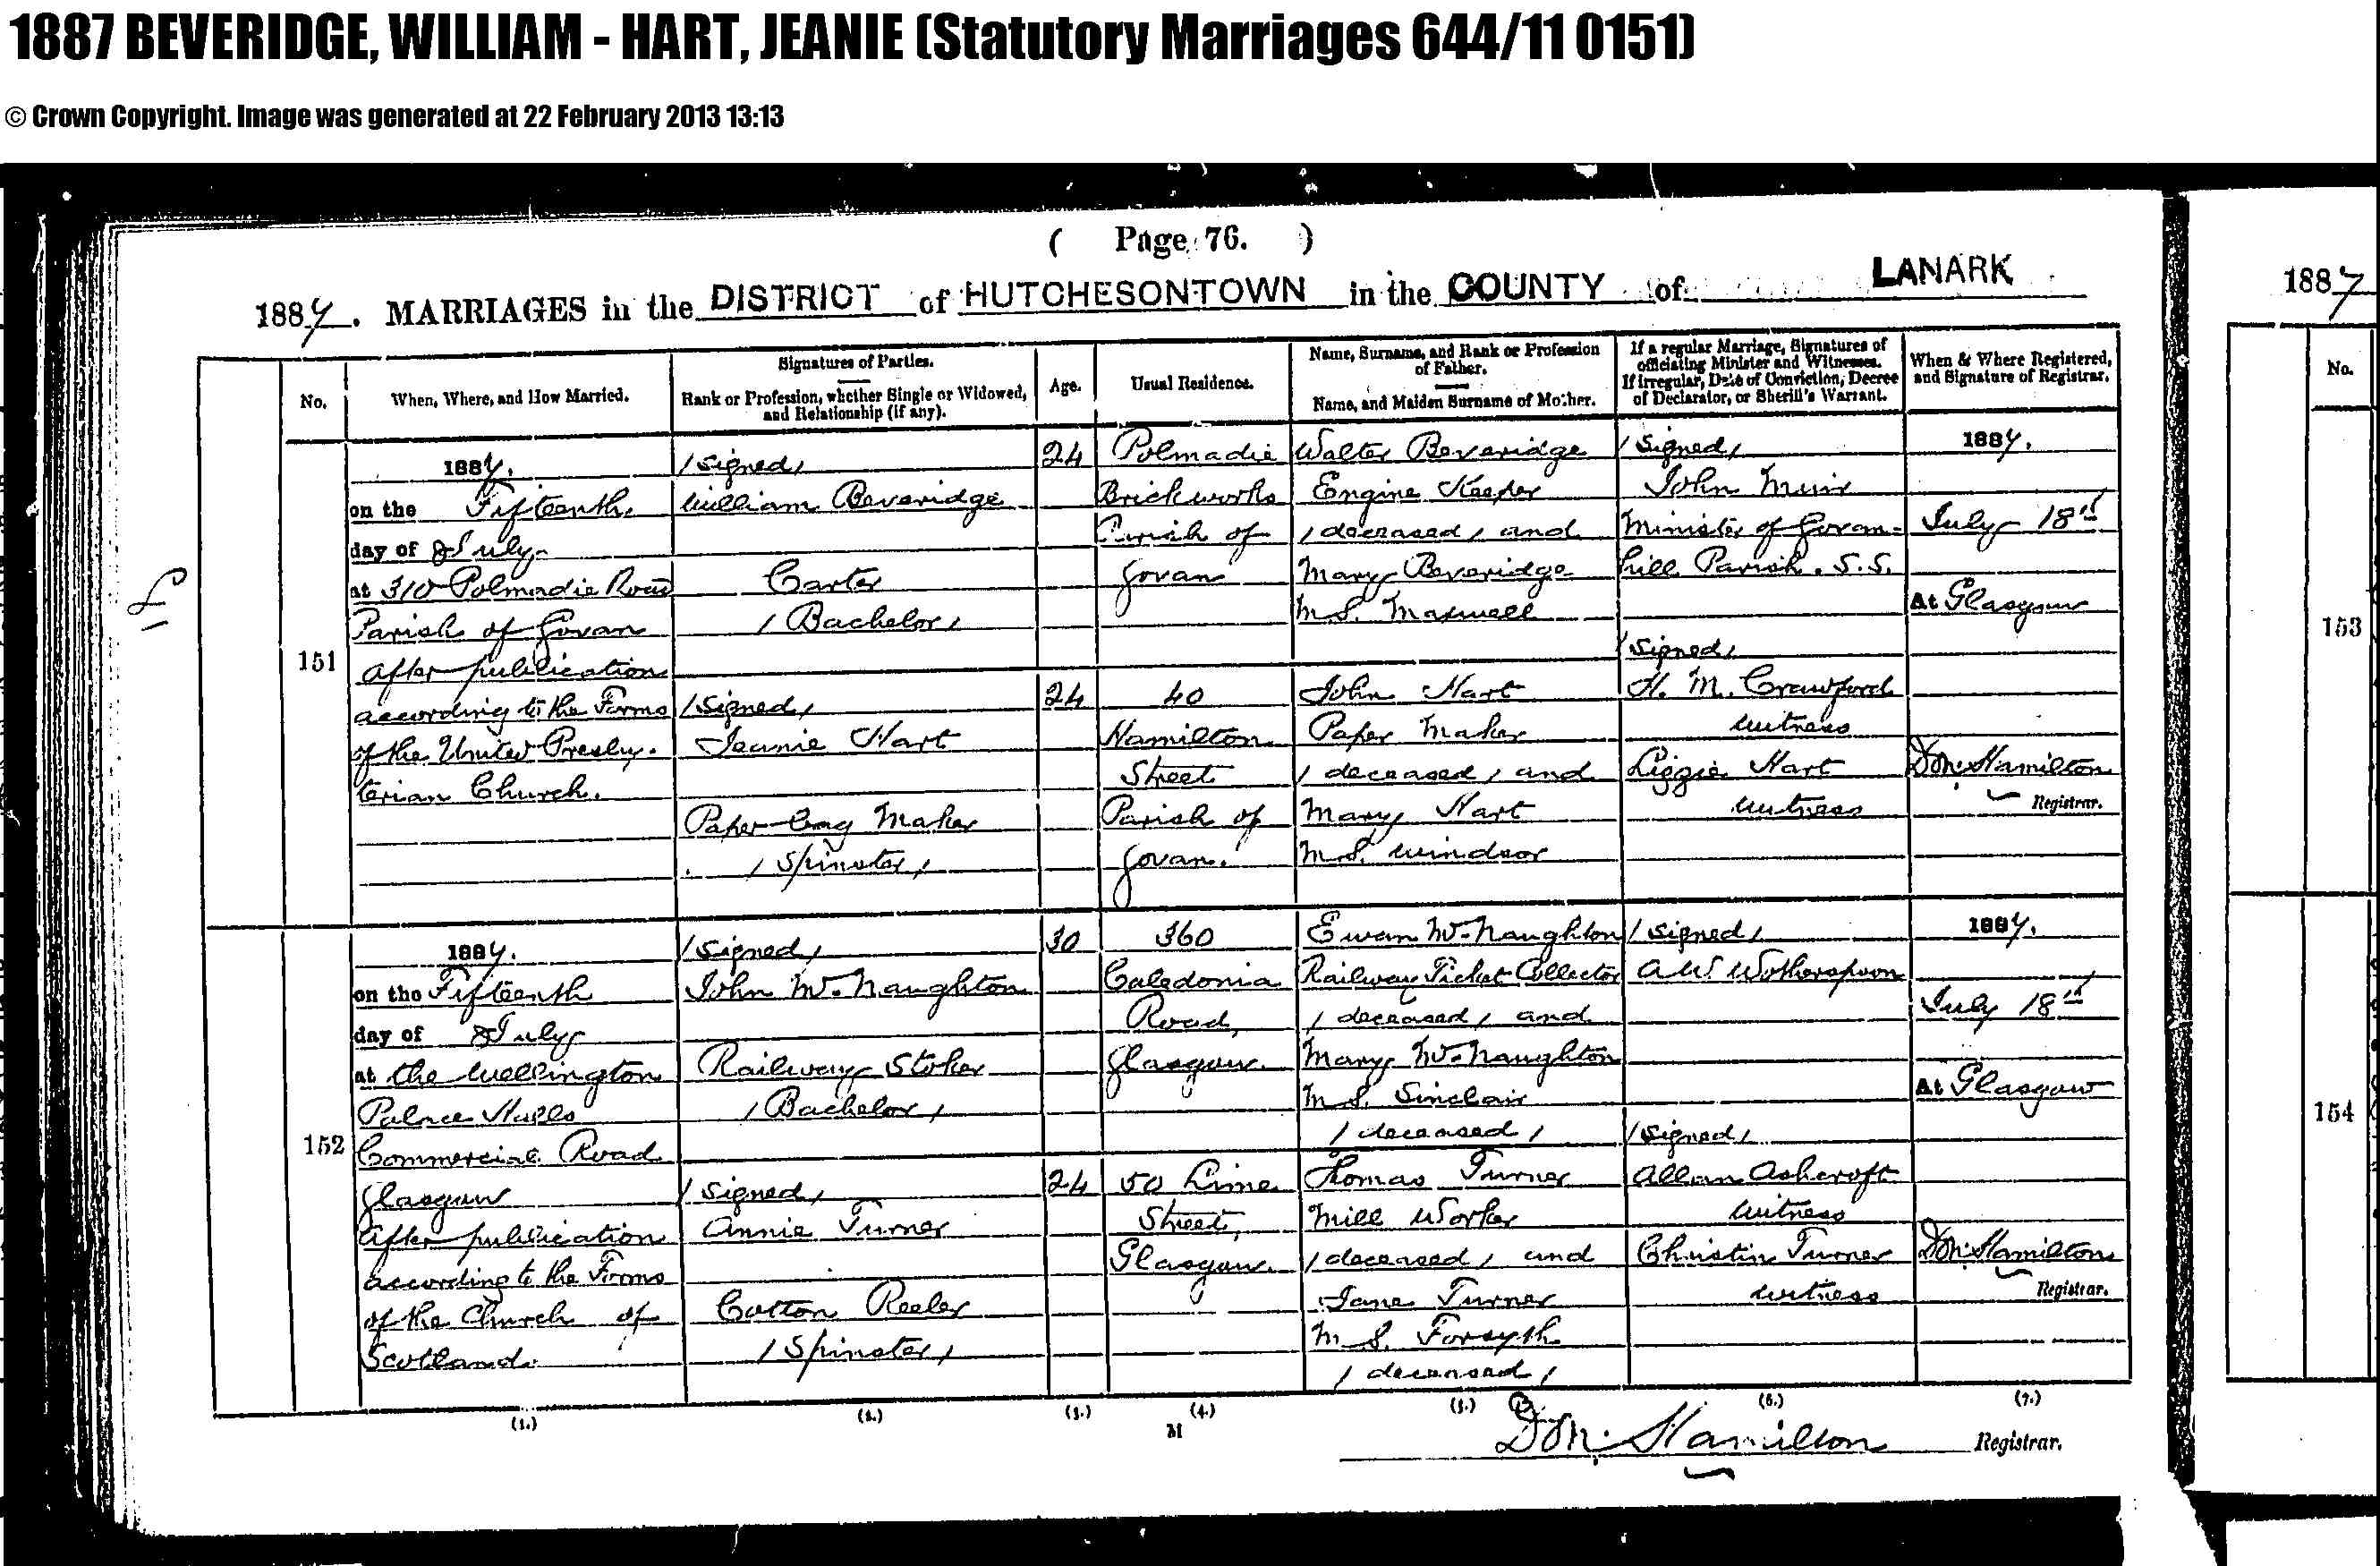 1887 BEVERIDGE, WILLIAM - HART, JEANIE (Statutory Marriages 644/11 0151)
© Crown Copyright. Image was generated at 22 February 2013 13:13
( Page 76. )
1887. MARRIAGES in the DISTRICT of HUTCHESONTOWN in the COUNTY of LANARK
No.
When, Where, and How Married.
Signatures of Parties.
Rank or Profession, whether Single or Widowed,
and Relationship (if any).
Age.
Usual Residence.
Name, Surname, and Rank or Profession
of Father.
Name, and Maiden Surname of Mother.
If a regular Marriage, Signatures of
officiating Minister and Witnesses.
If irregular, Date of Conviction, Decree
of Declarator, or Sheriff's Warrant.
When & Where Registered,
and Signature of Registrar.
151
1887.
on the Fifteenth
day of July
at 310 Polmadie Road
Parish of Govan
After publication
according to the Forms
of the United Presby-
terian Church.
(signed)
William Beveridge
Carter
(Bachelor)
(signed)
Jeanie Hart
Paper bag Maker
(Spinster)
24
24
Polmadie
Brickworks
Parish of
Govan
40
Hamilton
Street
Parish of
Govan.
Walter Beveridge
Engine Keeper
(deceased) and
Mary Beveridge
M.S. Maxwell
John Hart
Paper Maker
(deceased) and
Mary Hart
M.S. Windsor
(signed)
John Muir
Minister of Govan-
hill Parish. S.S.
(signed)
H. M. Crawford
witness
Lizzie Hart
witness
1887.
July 18th
At Glasgow
Hamilton
Registrar.
152
1887.
on the Fifteenth
day of July
at the Wellington
Palace Halls
Commercial Road
Glasgow
After publication
according to the Forms
of the Church of
Scotland.
(signed)
John McNaughton
Railway Stoker
(Bachelor)
(signed)
Annie Turner
Cotton Reeler
(Spinster)
30
24
360
Caledonia
Road,
Glasgow.
50 Lime
Street,
Glasgow.
Ewan McNaughton
Railway Ticket Collector
(deceased) and
Mary McNaughton
M.S. Sinclair
(deceased)
Thomas Turner
Mill Worker
(deceased) and
Jane Turner
M.S. Forsyth
(deceased)
(signed)
A.W. Wotherspoon
(signed)
Allan Ashcroft
witness
Christin Turner
witness
1887.
July 18th
At Glasgow
Hamilton
Registrar.
(1.) (2.) (3.) (4.) (5.) (6.) (7.)
M
Hamilton Registrar.
1887
No.
153
154